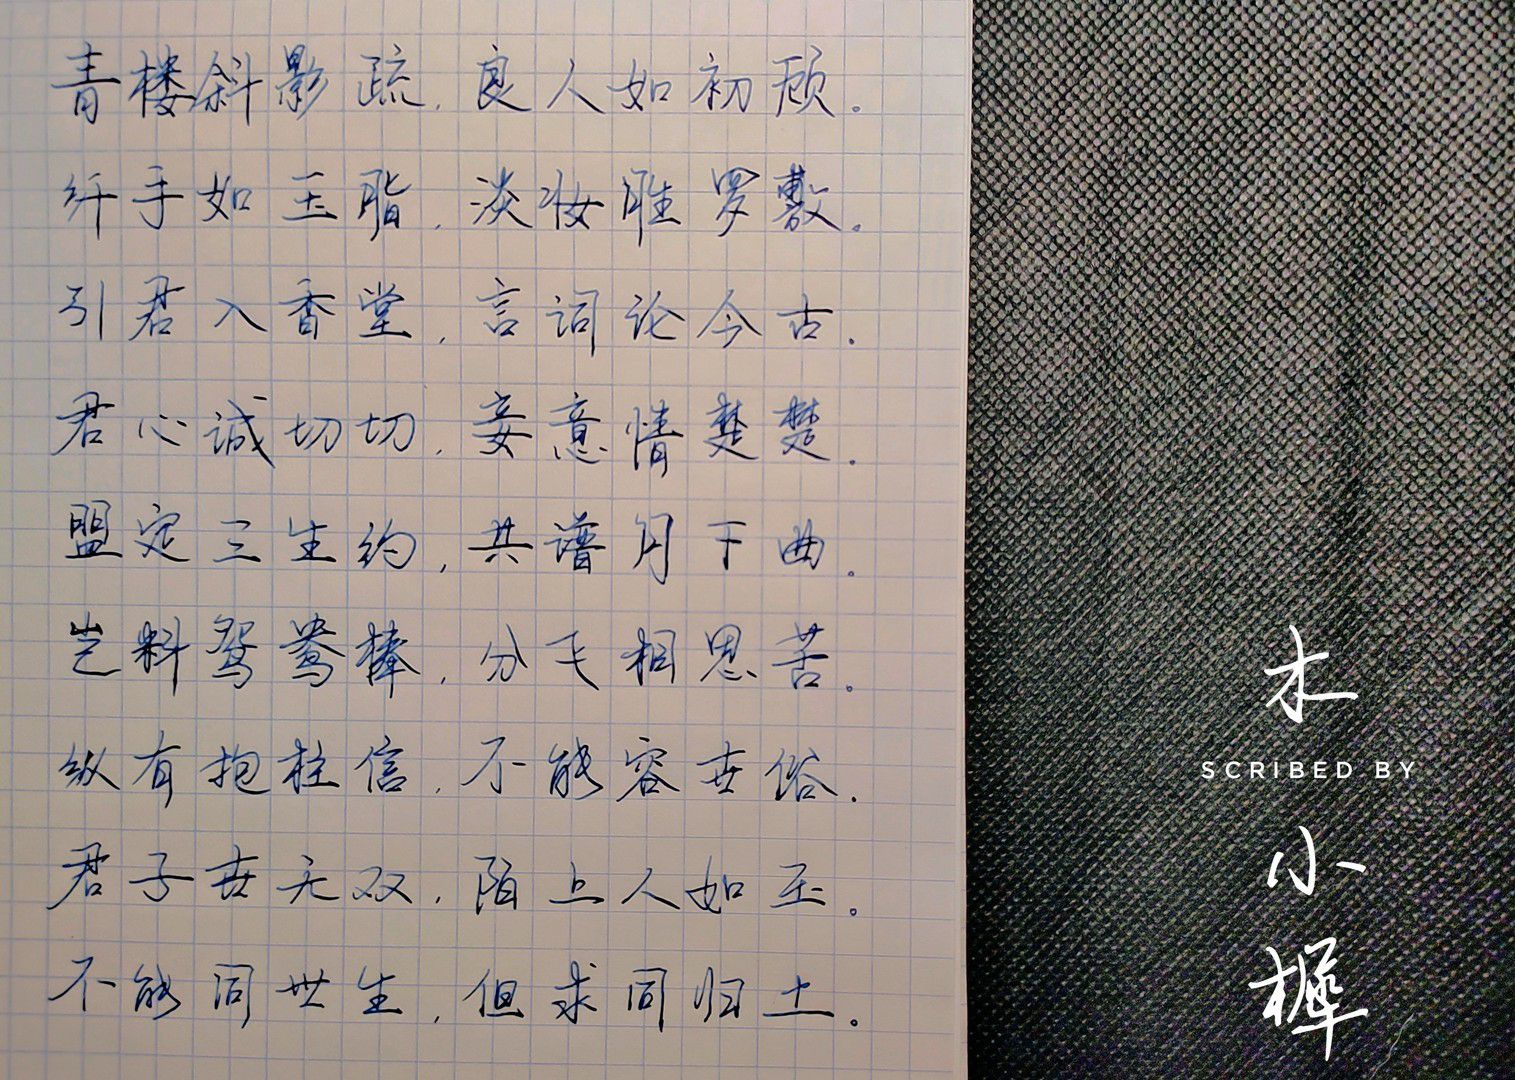 青楼斜影疏，良人如初顾。
纤手如玉脂，淡妆胜罗敷。
引君入香堂，言词论今古。
君心诚切切，妾意情楚楚。
盟定三生约，共谱月下曲。
岂料鸳鸯棒，分飞相思苦。
纵有抱柱信，不能容世俗。
君子世无双，陌上人如玉。
不能同世生，但求同归土。
木
SCRIBED BY
小樨